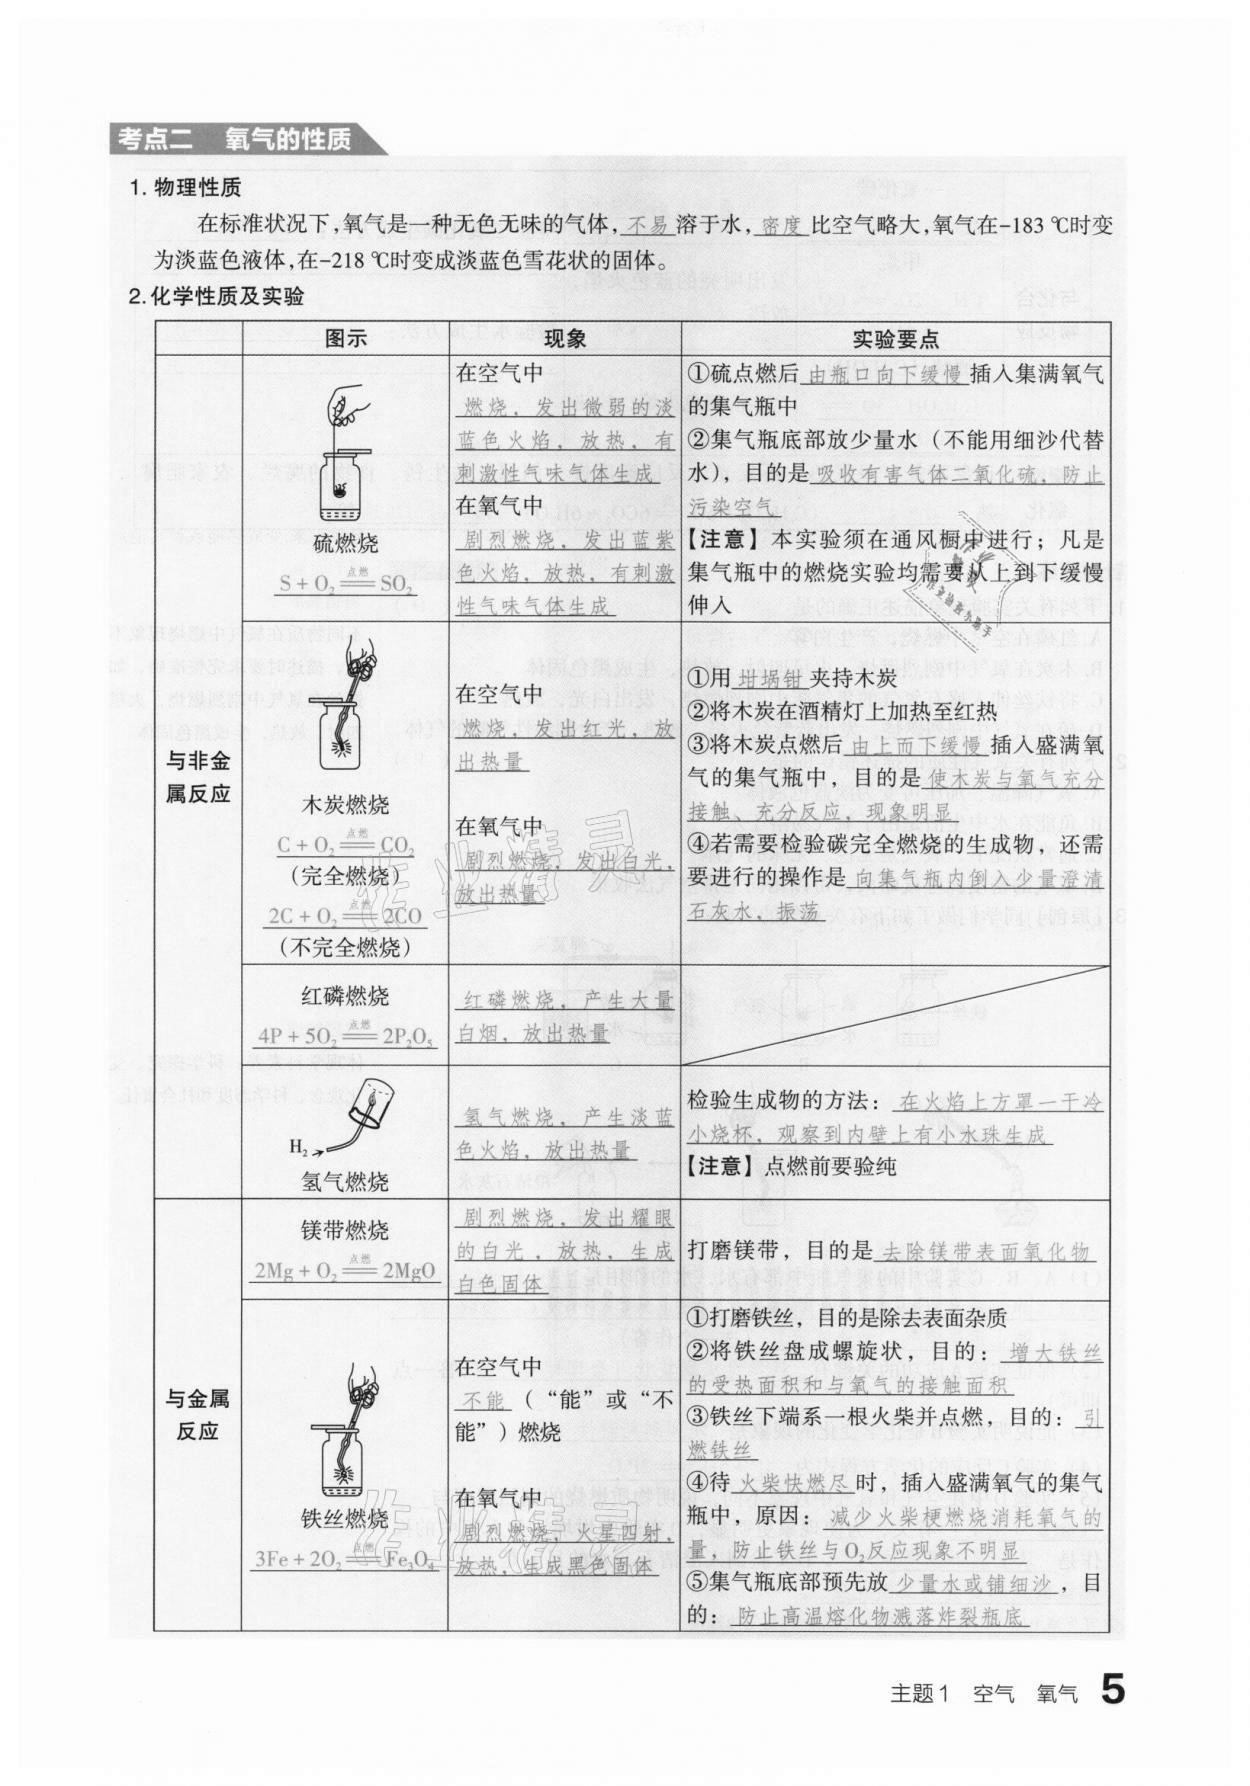 考点二 氧气的性质
1. 物理性质
在标准状况下,氧气是一种无色无味的气体,不易溶于水,密度比空气略大,氧气在-183 ℃时变
为淡蓝色液体,在-218 ℃时变成淡蓝色雪花状的固体。
2.化学性质及实验
图示 现象 实验要点
与非金
属反应
硫燃烧
S + O₂ 点燃═══ SO₂
在空气中
燃烧，发出微弱的淡
蓝色火焰，放热，有
刺激性气味气体生成
在氧气中
剧烈燃烧，发出蓝紫
色火焰，放热，有刺激
性气味气体生成
①硫点燃后由瓶口向下缓慢插入集满氧气
的集气瓶中
②集气瓶底部放少量水（不能用细沙代替
水），目的是吸收有害气体二氧化硫，防止
污染空气
【注意】本实验须在通风橱中进行；凡是
集气瓶中的燃烧实验均需要从上到下缓慢
伸入
木炭燃烧
C + O₂ 点燃═══ CO₂
(完全燃烧)
2C + O₂ 点燃═══ 2CO
(不完全燃烧)
在空气中
燃烧，发出红光，放
出热量
在氧气中
剧烈燃烧，发出白光，
放出热量
①用坩埚钳夹持木炭
②将木炭在酒精灯上加热至红热
③将木炭点燃后由上而下缓慢插入盛满氧
气的集气瓶中，目的是使木炭与氧气充分
接触、充分反应，现象明显
④若需要检验碳完全燃烧的生成物，还需
要进行的操作是向集气瓶内倒入少量澄清
石灰水，振荡
红磷燃烧
4P + 5O₂ 点燃═══ 2P₂O₅
红磷燃烧，产生大量
白烟，放出热量
H₂
氢气燃烧
氢气燃烧，产生淡蓝
色火焰，放出热量
检验生成物的方法：在火焰上方罩一干冷
小烧杯，观察到内壁上有小水珠生成
【注意】点燃前要验纯
与金属
反应
镁带燃烧
2Mg + O₂ 点燃═══ 2MgO
剧烈燃烧，发出耀眼
的白光，放热，生成
白色固体
打磨镁带，目的是去除镁带表面氧化物
铁丝燃烧
3Fe + 2O₂ 点燃═══ Fe₃O₄
在空气中
不能（“能”或“不
能”）燃烧
在氧气中
剧烈燃烧，火星四射，
放热，生成黑色固体
①打磨铁丝，目的是除去表面杂质
②将铁丝盘成螺旋状，目的：增大铁丝
的受热面积和与氧气的接触面积
③铁丝下端系一根火柴并点燃，目的：引
燃铁丝
④待火柴快燃尽时，插入盛满氧气的集气
瓶中，原因：减少火柴梗燃烧消耗氧气的
量，防止铁丝与O₂反应现象不明显
⑤集气瓶底部预先放少量水或铺细沙，目
的：防止高温熔化物溅落炸裂瓶底
作业精灵
作业精灵
主题1 空气 氧气 5